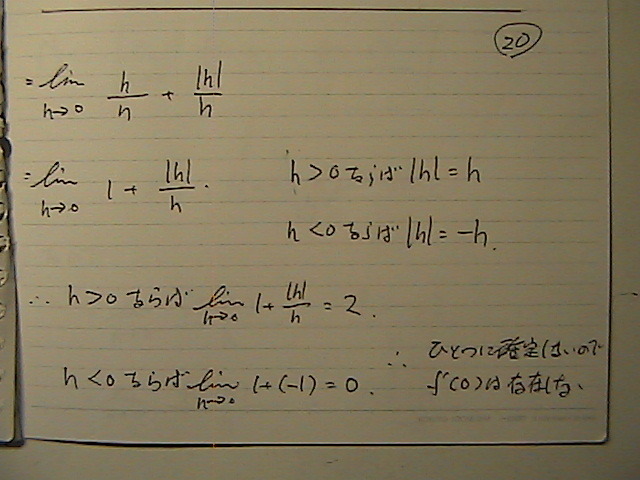 20
= lim h→0 h/h + |h|/h
= lim h→0 1 + |h|/h. h>0ならば |h| = h
h<0ならば |h| = -h.
∴ h>0ならば lim h→0 1+ |h|/h = 2.
h<0ならば lim h→0 1+(-1) = 0.
∴ ひとつに確定しないので
f'(0)は存在しない